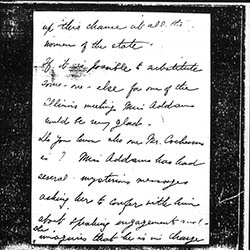 up this chance at all the
women of the state.
If it is possible to substitute
some-one-else for one of the
Illinois meeting Miss Addams
would be very glad.
Do you know who Mr. Cochran
is? Miss Addams has had
several mysterious messages
asking her to confer with him
about speaking engagements
she imagines that he is in charge